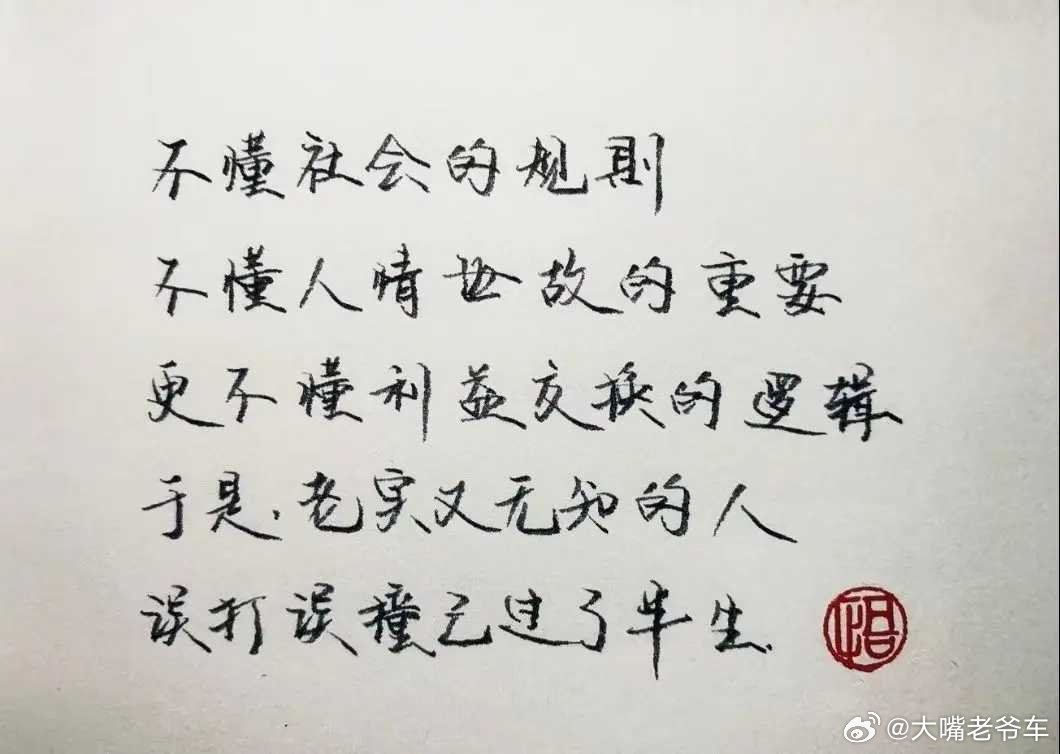 不懂社会的规则
不懂人情世故的重要
更不懂利益交换的逻辑
于是.老实又无知的人
误打误撞已过了半生.
悟
@大嘴老爷车